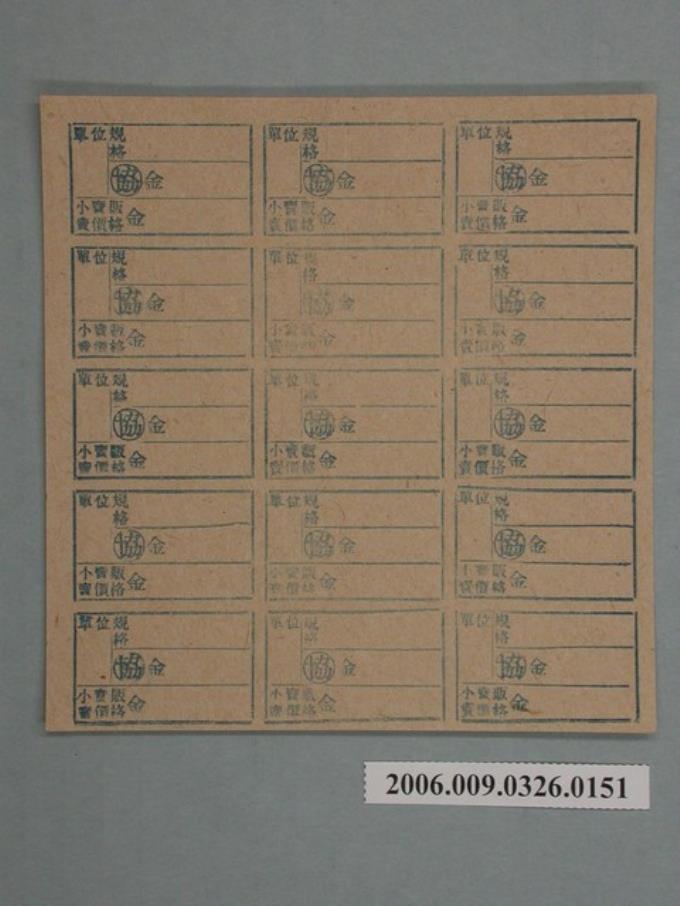 單位規
格
協金
小賣販
賣價格金
單位規
格
協金
小賣販
賣價格金
單位規
格
協金
小賣販
賣價格金
單位規
格
協金
小賣販
賣價格金
單位規
格
協金
小賣販
賣價格金
單位規
格
協金
小賣販
賣價格金
單位規
格
協金
小賣販
賣價格金
單位規
格
協金
小賣販
賣價格金
單位規
格
協金
小賣販
賣價格金
單位規
格
協金
小賣販
賣價格金
單位規
格
協金
小賣販
賣價格金
單位規
格
協金
小賣販
賣價格金
單位規
格
協金
小賣販
賣價格金
單位規
格
協金
小賣販
賣價格金
單位規
格
協金
小賣販
賣價格金
2006.009.0326.0151